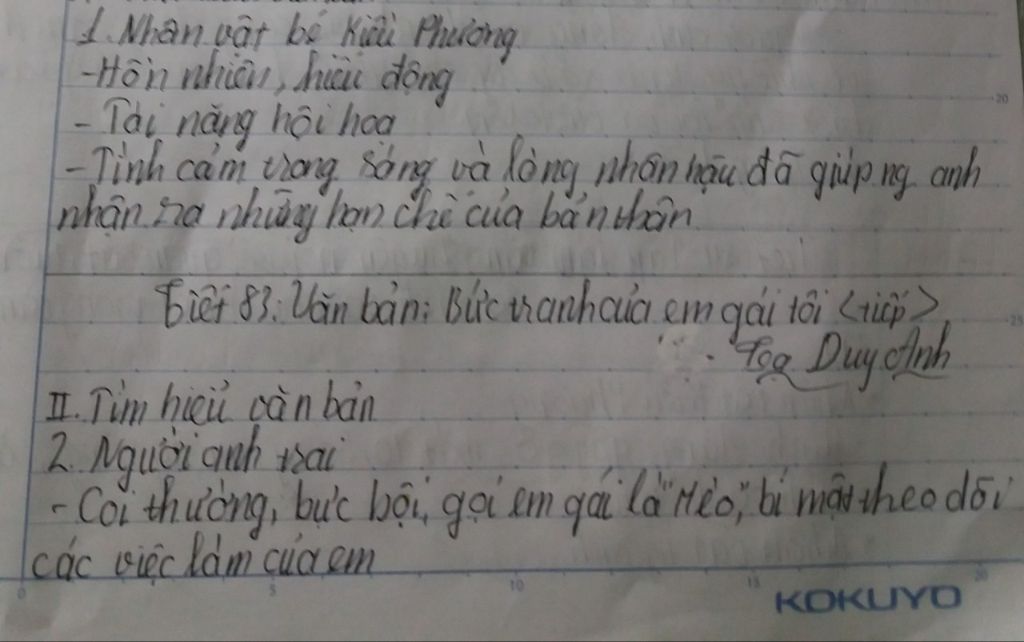 1. Nhân vật bé Kiều Phương
- Hồn nhiên, hiếu động
- Tài năng hội họa
- Tình cảm trong sáng và lòng nhân hậu đã giúp ng anh
nhận ra những hạn chế của bản thân
Tiết 83: Văn bản: Bức tranh của em gái tôi <tiếp>
Tạ Duy Anh
II. Tìm hiểu văn bản
2. Người anh trai
- Coi thường, bực bội, gọi em gái là "Mèo", bí mật theo dõi
các việc làm của em
0 5 10 15 20
KOKUYO
20
25